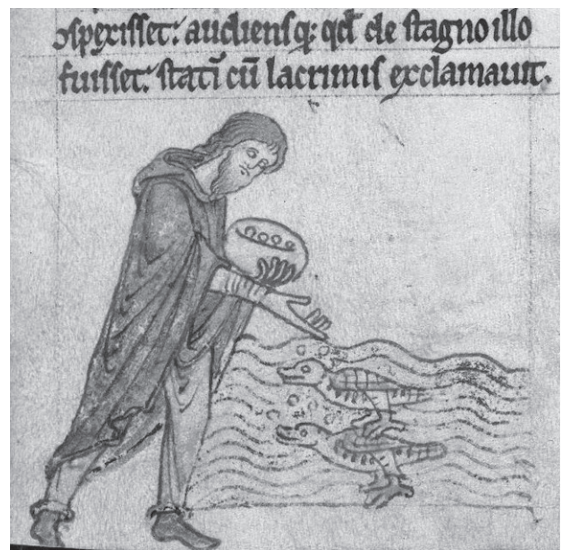 ꝯspexisset: audiensq; qđ de stagno illo
fuisset. statī cū lacrimis exclamauit.